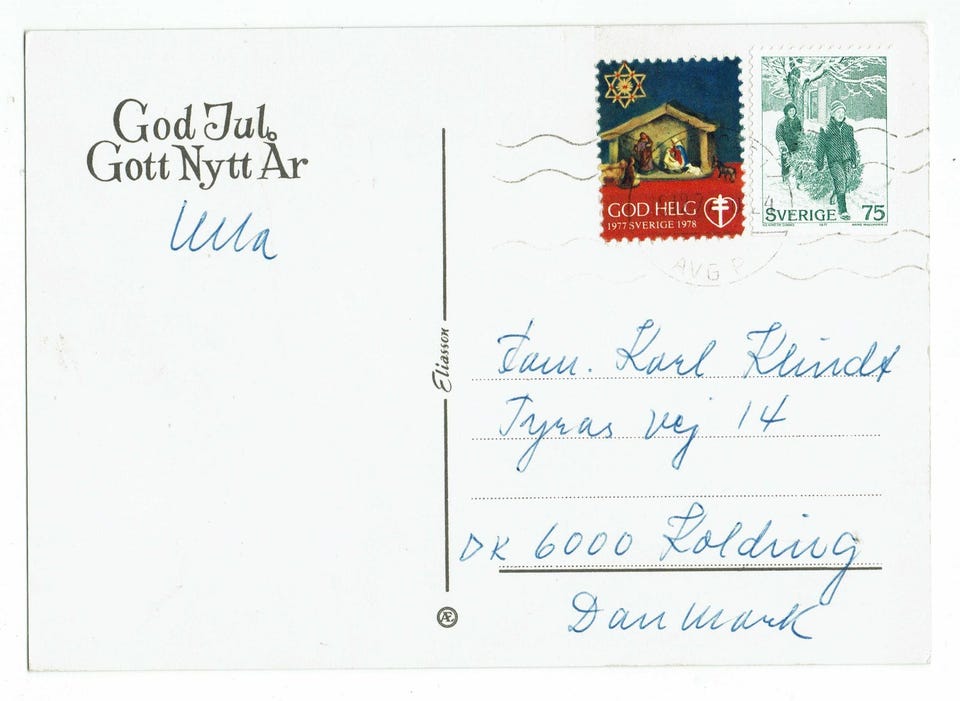 God Jul.
Gott Nytt År
Ulla
GOD HELG
1977 SVERIGE 1978
SVERIGE 75
AVG P
Eliasson
Fam. Karl Klindt
Tyras Vej 14
DK 6000 Kolding
Danmark
Æ